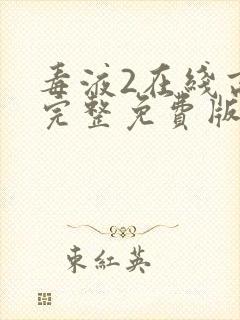 毒液2在线
完整免費版
東紅英